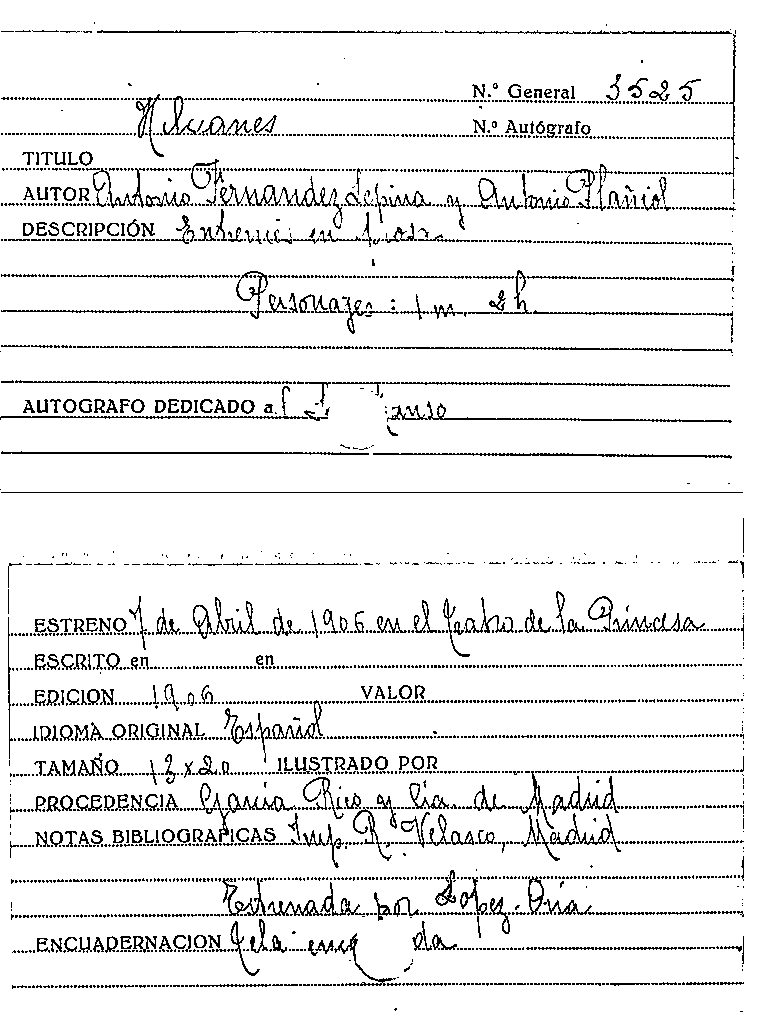 N.º General 3525
N.º Autógrafo
TITULO
AUTOR Antonio Fernandez Lepina y Antonio Plañiol
DESCRIPCIÓN Entremés en prosa
Personages: 1 m. 2 h.
AUTOGRAFO DEDICADO a
ESTRENO 7 de Abril de 1906 en el Teatro de la Princesa
ESCRITO en en
EDICION 1906 VALOR
IDIOMA ORIGINAL Español
TAMAÑO 13 x 20 ILUSTRADO POR
PROCEDENCIA Garcia Rico y Cia. de Madrid
NOTAS BIBLIOGRAFICAS Imp. R. Velasco, Madrid
Estrenada por Lopez-
ENCUADERNACION Tela